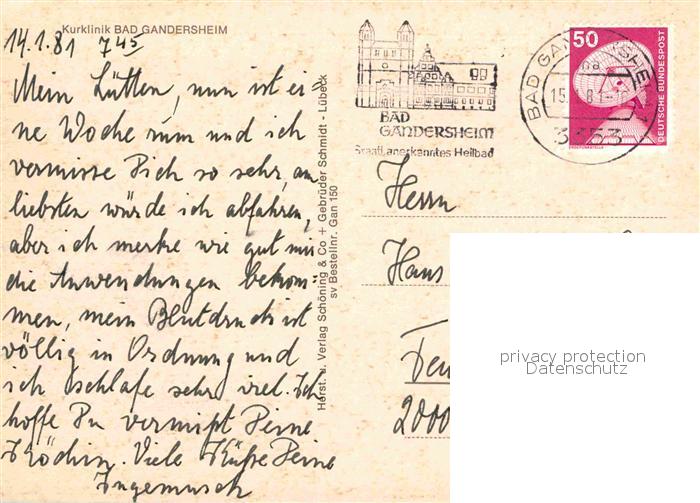 Kurklinik BAD GANDERSHEIM
14.1.81 7 45
Mein Lütten, nun ist ei=
ne Woche rum und ich
vermisse Dich so sehr, am
liebsten würde ich abfahren,
aber ich merke wie gut mir
die Anwendungen bekom=
men, mein Blutdruck ist
völlig in Ordnung und
ich schlafe sehr viel. Ich
hoffe Du vermißt Deine
Köchin. Viele Küße Deine
Ingemusch
Horst. u. Verlag Schöning & Co + Gebrüder Schmidt - Lübeck
sv Bestellnr. Gan 150
BAD
GANDERSHEIM
Staatl. anerkanntes Heilbad
BAD GANDERSHE
15.
3353
50
DEUTSCHE BUNDESPOST
Herrn
Hans
2000
privacy protection
Datenschutz